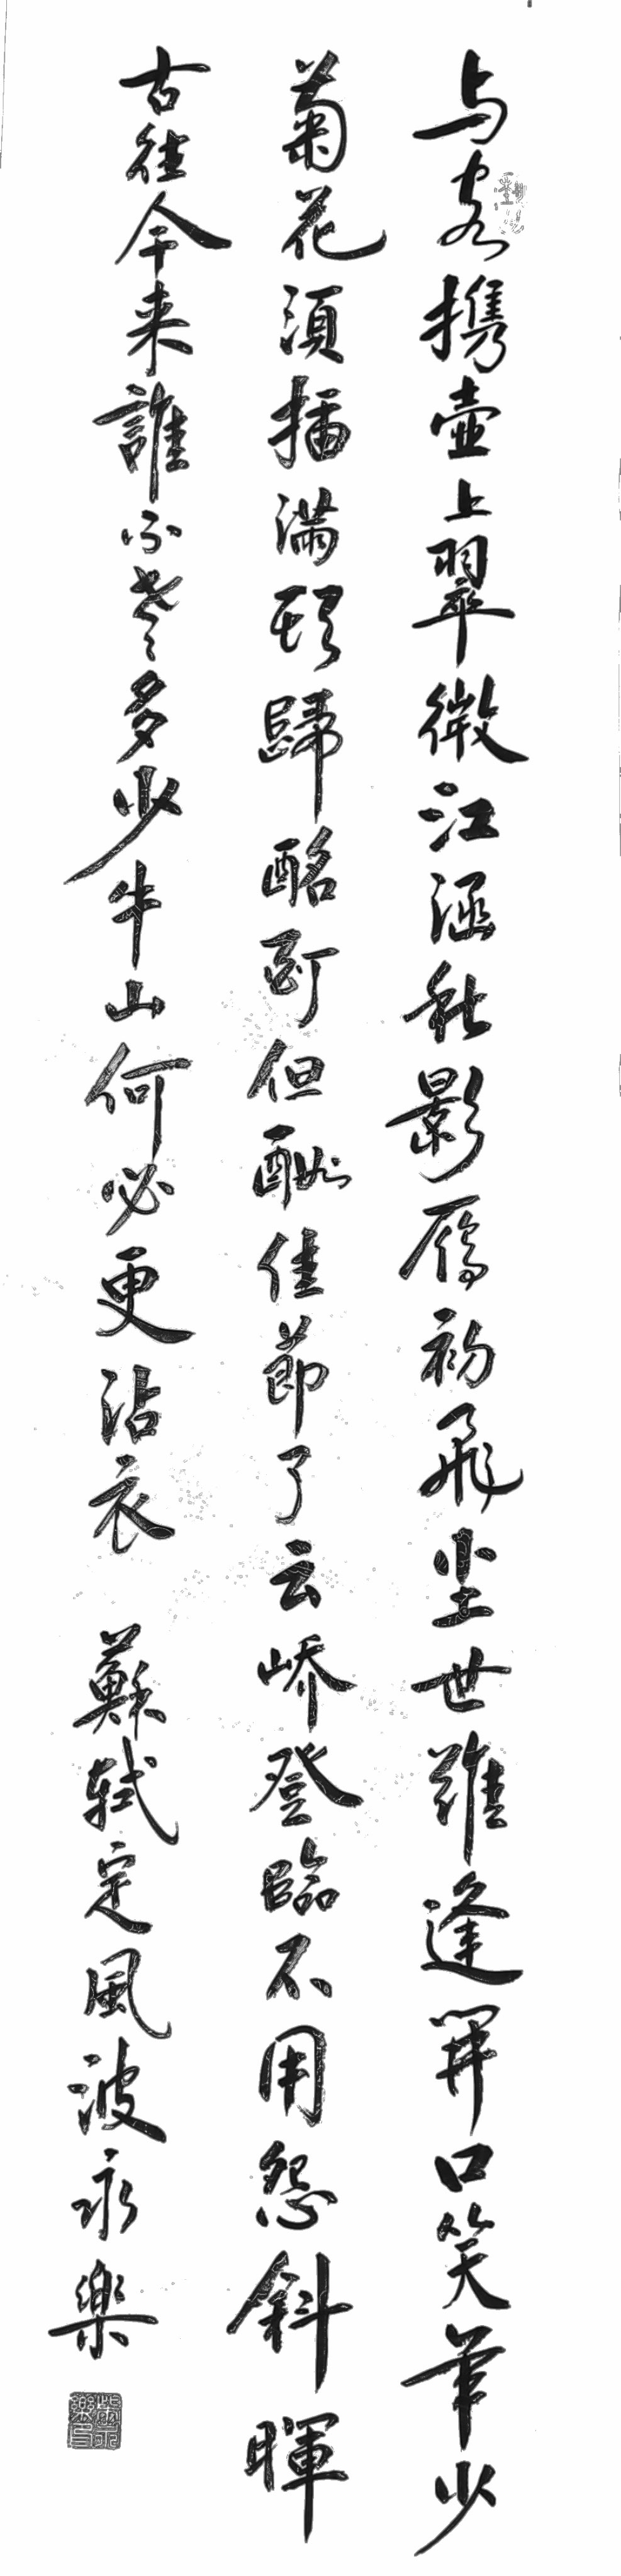 与客携壺上翠微江涵秋影雁初飛尘世難逢開口笑年少
菊花須插满頭歸酩酊但酬佳節了云峤登臨不用怨斜暉
古往今来誰不老多少牛山何必更沾衣 蘇軾定風波永樂